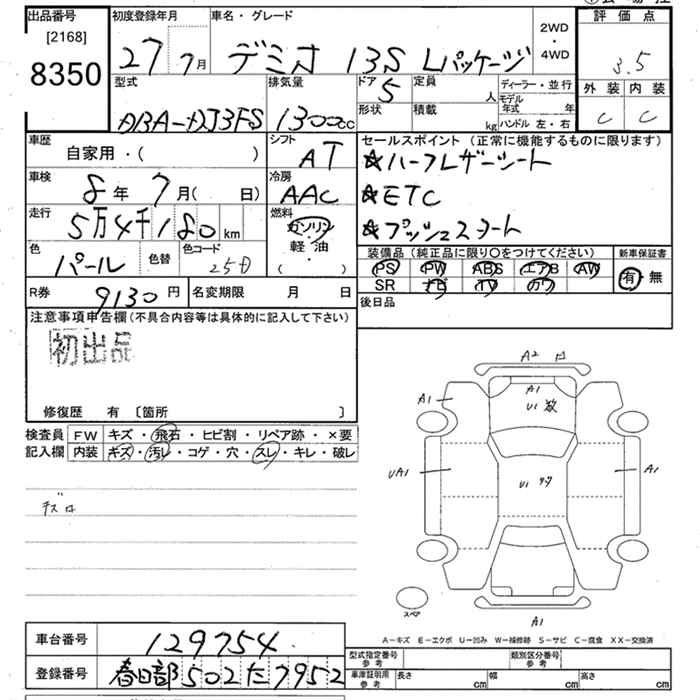 出品番号
[2168]
8350
初度登録年月
27 7月
車名・グレード
デミオ 13S Lパッケージ
2WD
・
4WD
評価点
3.5
外装 内装
C C
型式
DBA-DJ3FS
排気量
1300cc
ドア 5
形状
定員 人
積載 kg
ディーラー・並行
モデル年式 年
ハンドル 左・右
車歴
自家用・( )
シフト
AT
車検
8年 7月( 日)
冷房
AAC
走行
5万4千180 km
燃料
ガソリン
軽油
( ・ )
色
パール
色替
色コード
25D
セールスポイント (正常に機能するものに限ります)
☆ハーフレザーシート
☆ETC
☆プッシュスタート
装備品 (純正品に限り○をつけてください)
PS PW ABS エアB AW
SR ナビ TV カワ
新車保証書
有 無
R券 9130円
名変期限 月 日
後日品
注意事項申告欄(不具合内容等は具体的に記入して下さい)
初出品
修復歴 有 〔箇所 〕
検査員記入欄
FW キズ・飛石・ヒビ割・リペア跡・×要
内装 キズ・汚レ・コゲ・穴・スレ・キレ・破レ
A2
A1
A1
U1 数
UA1
U1
A1
スペア
A1
A-キズ E-エクボ U-凹み W-補修跡 S-サビ C-腐食 XX-交換済
車台番号
129754
登録番号
春日部502た7952
型式指定番号
参考
類別区分番号
参考
車庫証明用
参考
長さ cm
幅 cm
高さ cm